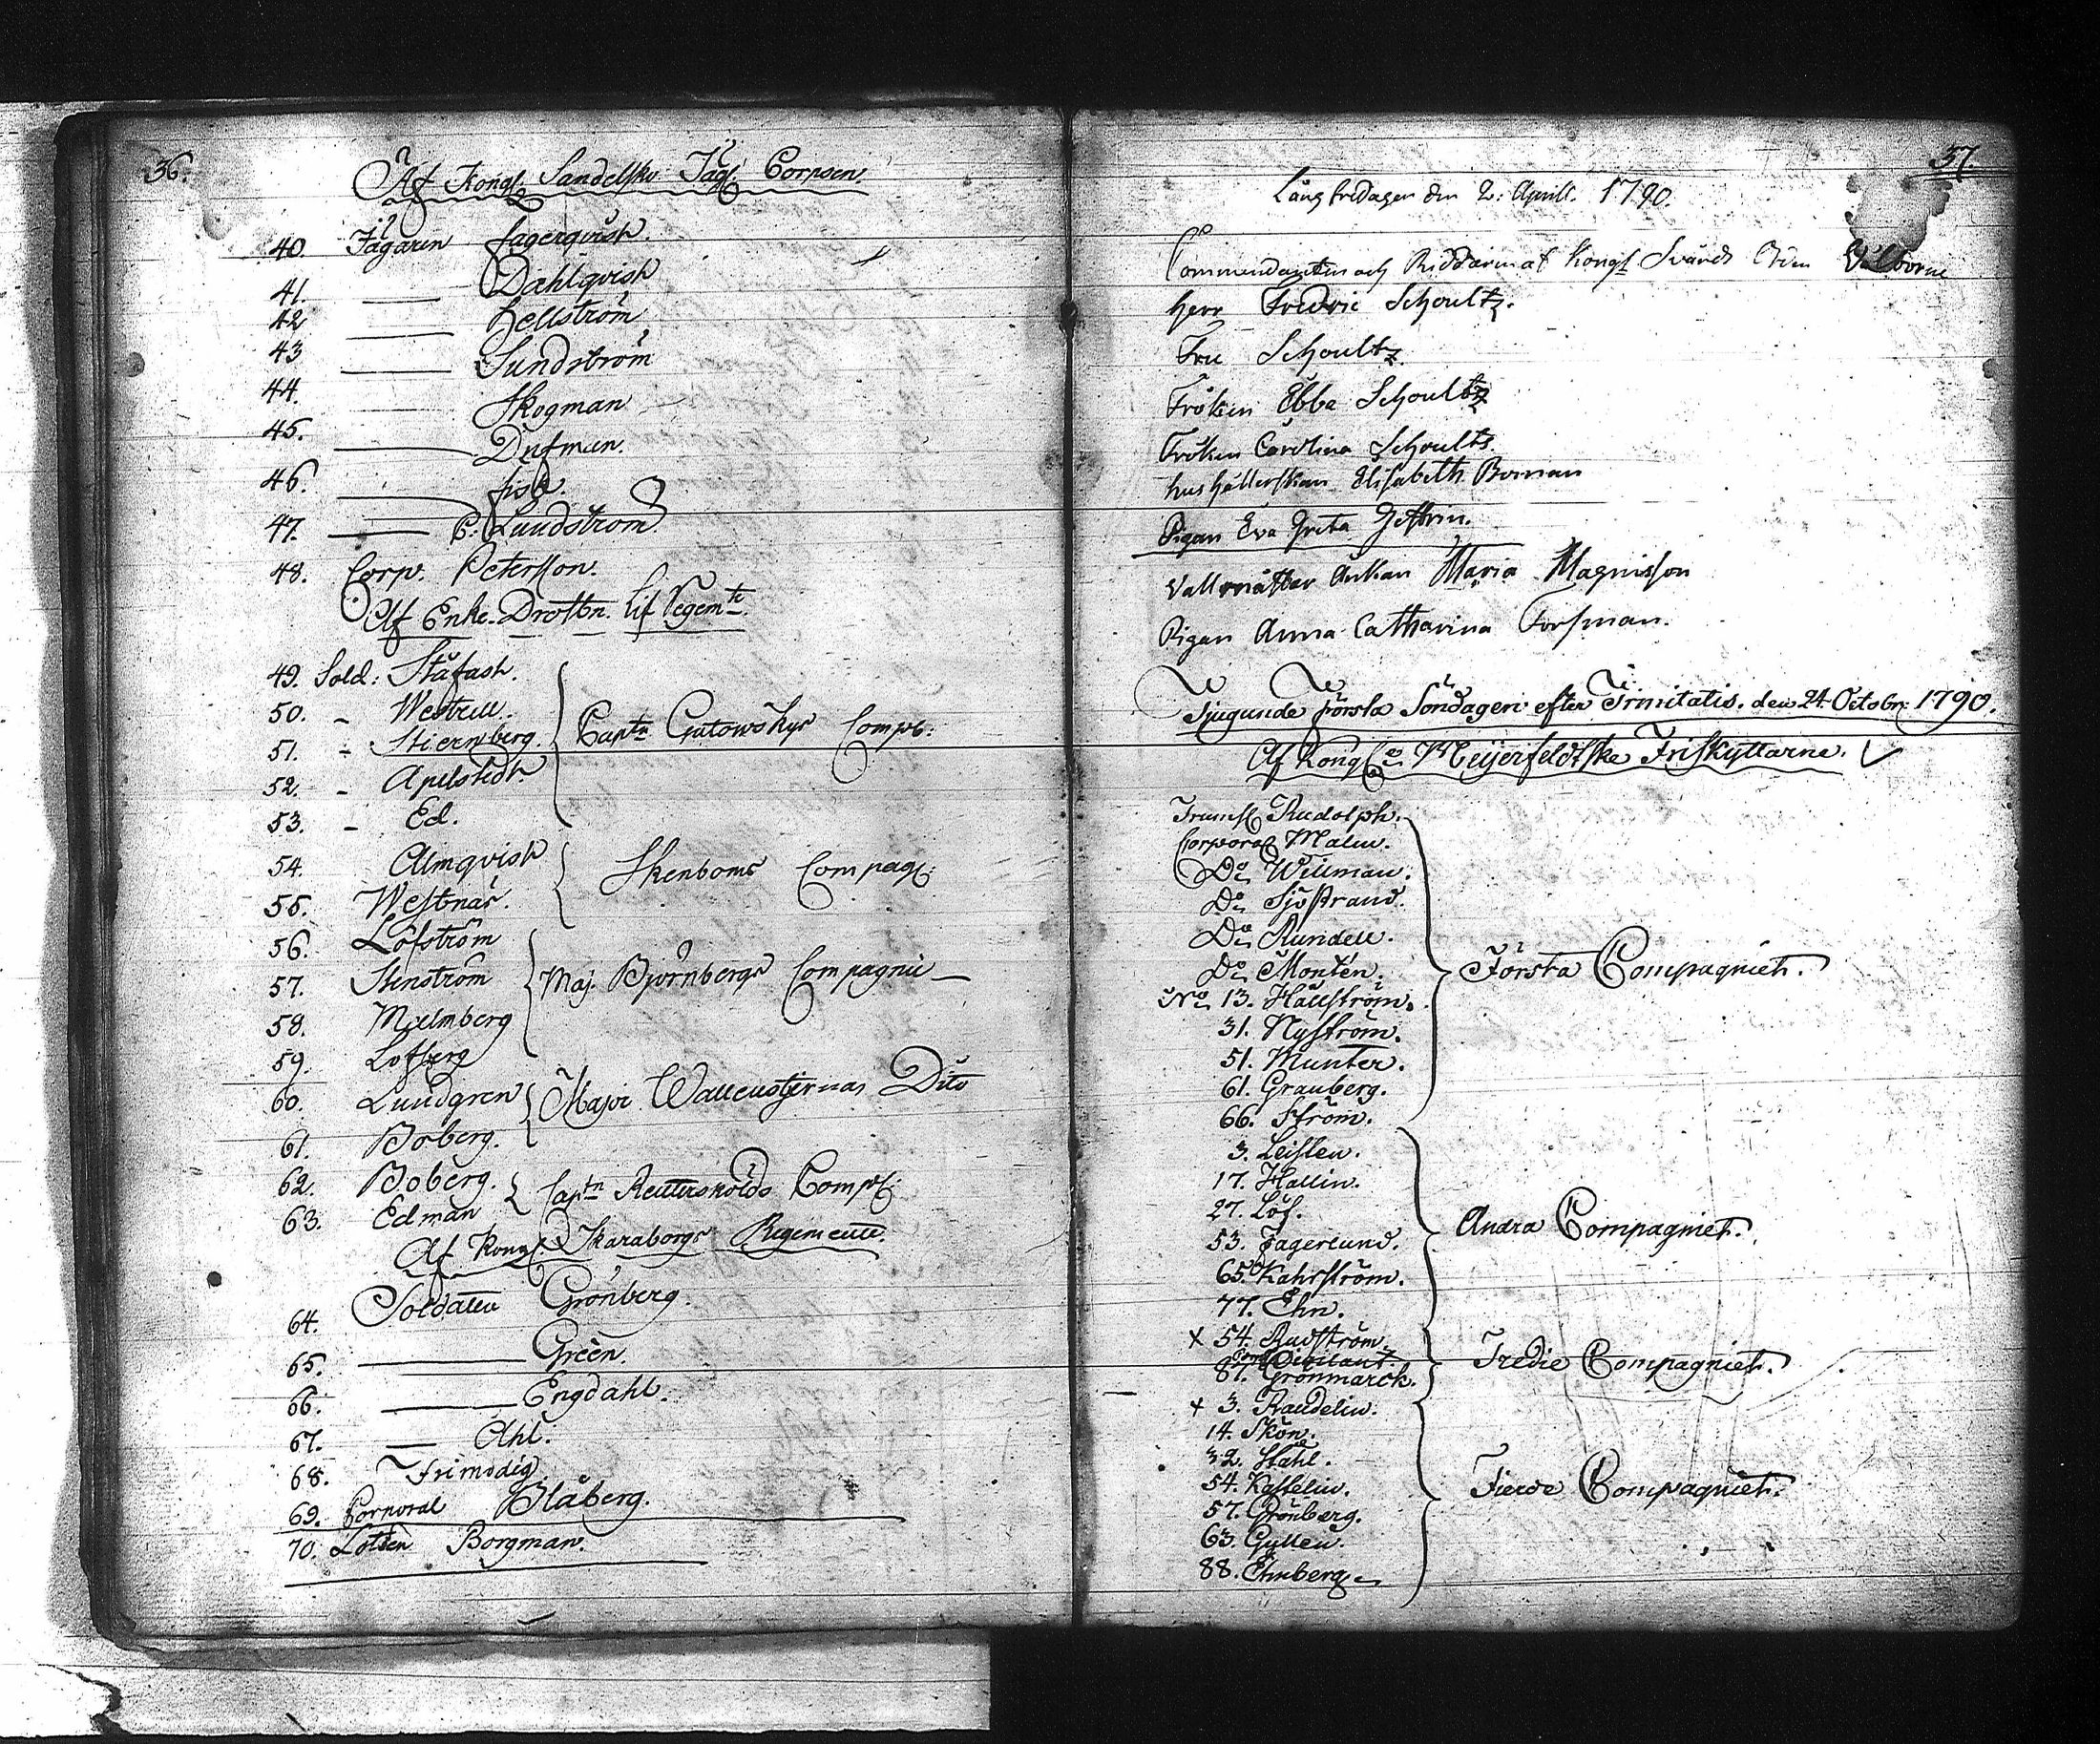 36.
Af Kongl. Sandelska Jäg. Corpsen
40. Jägaren Fagerqvist.
41. Dahlqvist
42 Hellström
43 Sundström
44. Skogman
45. Dufman.
46. Fisk.
47. C. Lundström
48. Corp. Petersson.
Af Enke-Drottn. Lif Regemte.
49. Sold: Ståfast.
50. - Westrell.
51. - Stiernberg. Captn Gutowskys Comp:
52. - Apelstedt.
53. - Ed.
54. Almqvist
55. Westnär. Stenboms Compag:
56. Löfström
57. Stenström Maj. Björnbergs Compagnie
58. Malmberg
59. Lofberg
60. Lundgren Major Wallenstjernas Dito
61. Boberg.
62. Boberg. Captn Reuterskölds Comp:
63. Edman
Af Kongl. Skaraborgs Regemente.
64. Soldaten Grönberg.
65. Green.
66. Engdahl.
67. Ahl.
68. Frimodig
69. Corporal Blåberg.
70. Lotten Borgman.
37
Långfredagen den 2. Aprill. 1790.
Commendanten och Riddaren af Kongl Svärds Orden Välborne
Herr Fredric Schoultz.
Fru Schoultz
Fröken Ebba Schoultz
Fröken Carolina Schoultz.
hushållerskan Elisabeth Boman
Pigan Eva Greta
Vallmästar Ankan Maria Magnisson
Pigan Anna Catharina Forsman.
Tjugunde första Söndagen efter Trinitatis. den 24 Octobr: 1790.
Af Kongl. Meijerfeldtske Friskyttarne.
Trumsl Rudolph.
Corporal Malm.
Do Willman.
Do Sjöstrand.
Do Rundell.
Do Montén. Första Compagniet.
No 13. Hällström.
31. Nyström.
51. Munter.
61. Granberg.
66. Ström.
3. Leisten.
17. Hallin.
27. Löf.
53. Fagerlund. Andra Compagniet.
65. Kahrström.
77. Ehn.
x 54. Rudström.
87. Grönmarck. Tredie Compagniet.
x 3. Randelin.
14. Skön.
32. Ståhl.
54. Kastelin. Fierde Compagniet.
57. Grönberg.
63. Gyllen.
88. Ehnberg